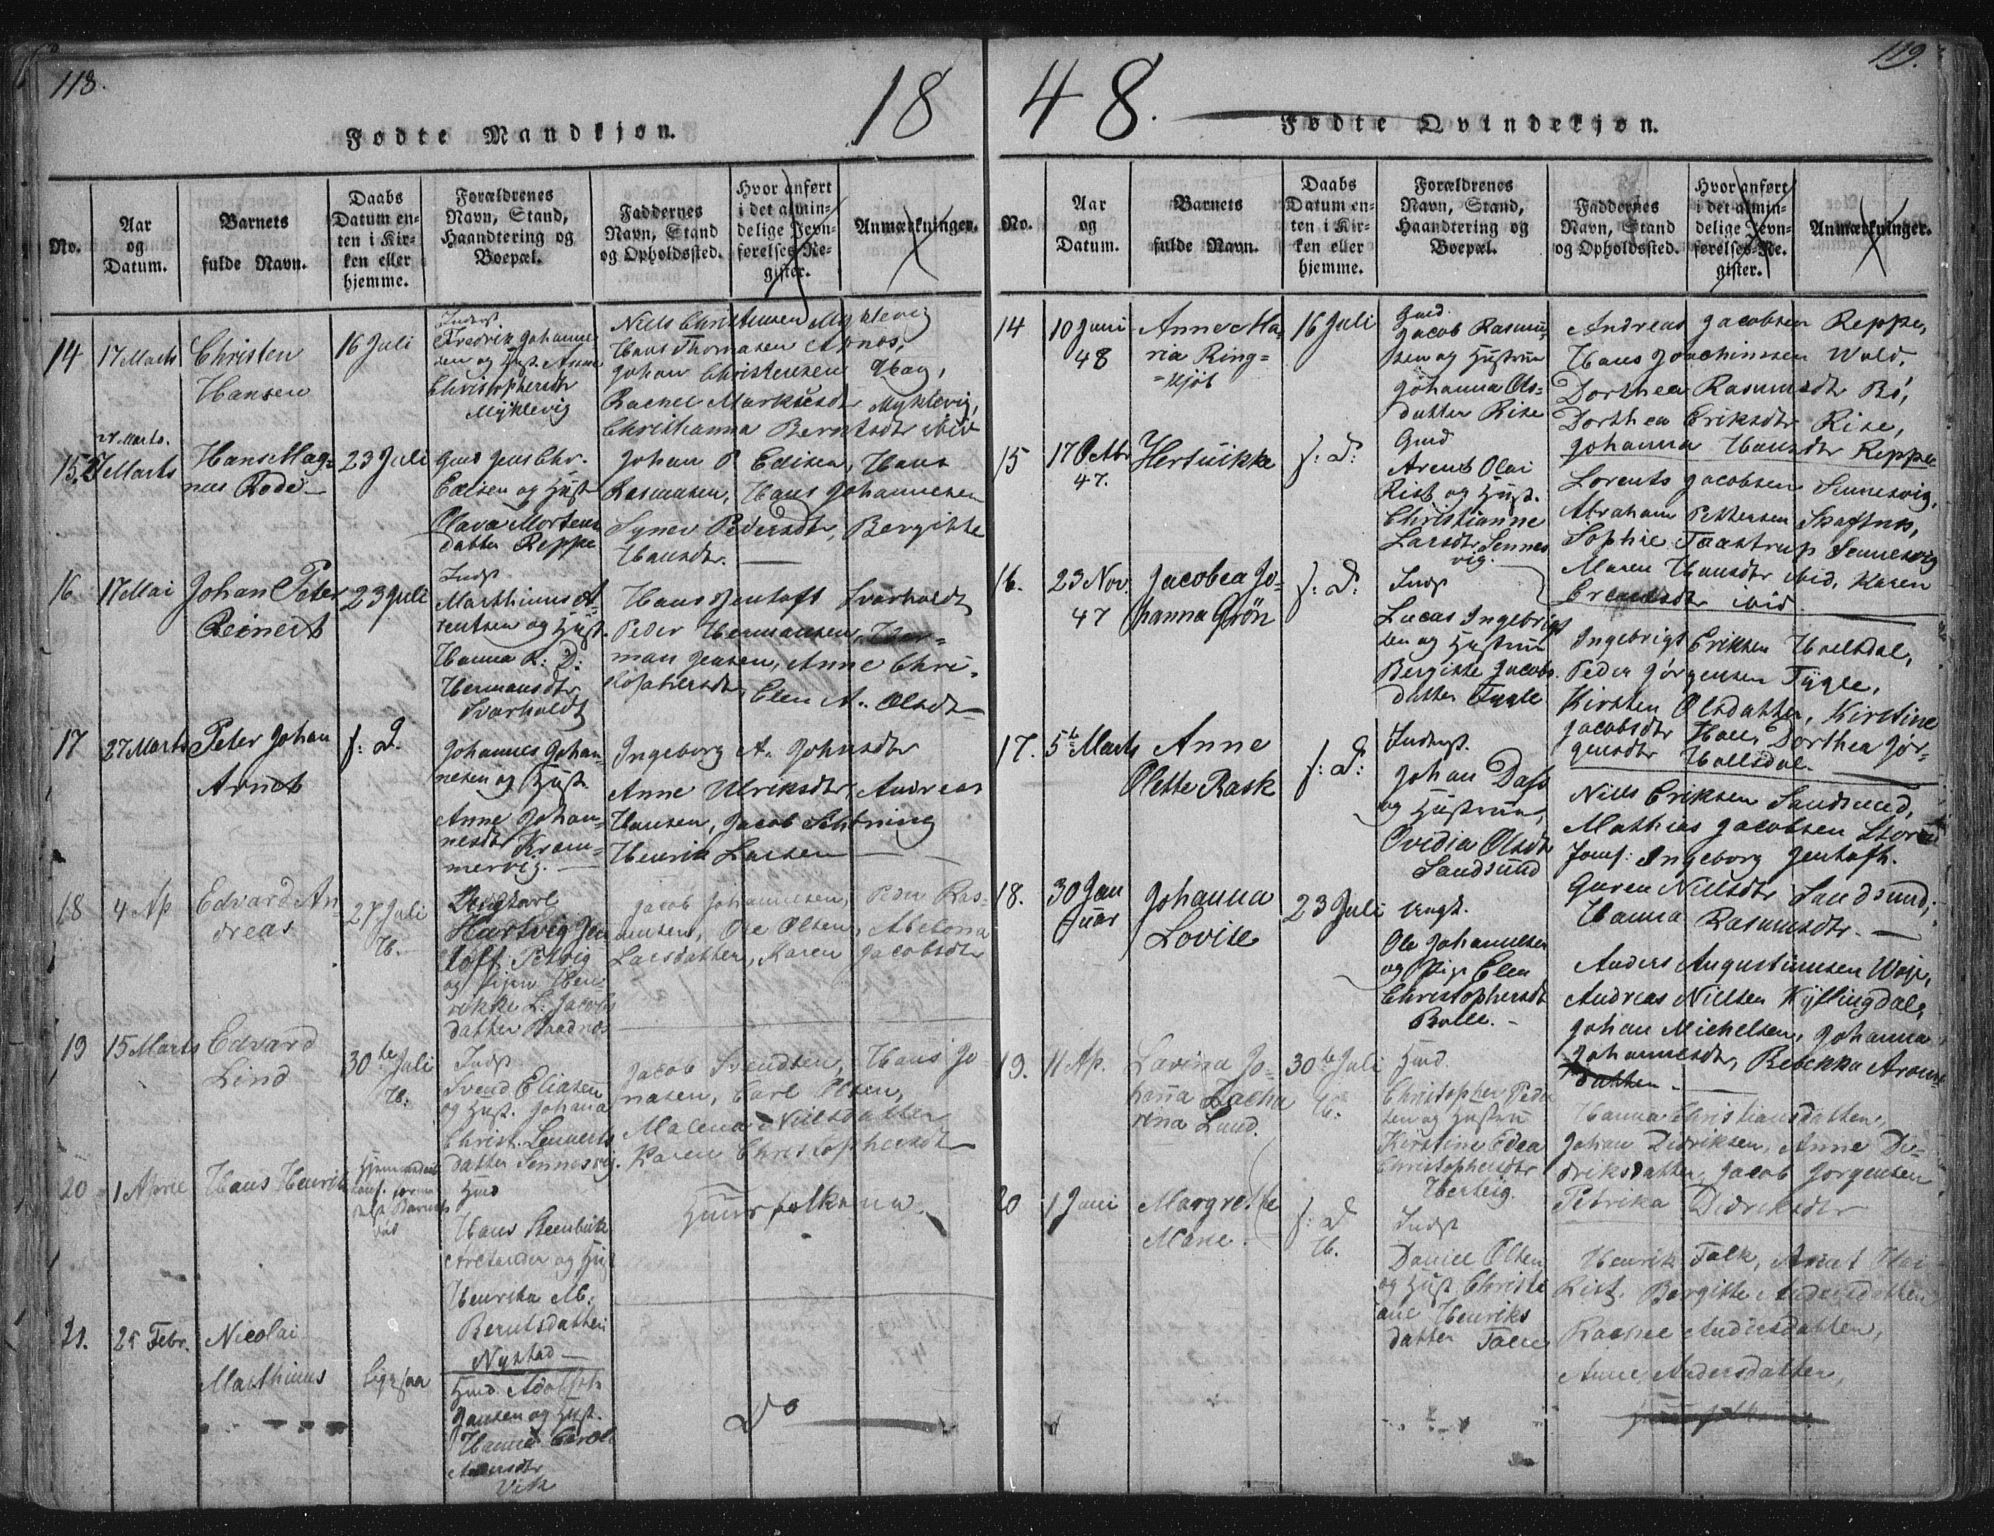 118.
18
Fødte Mandkjøn.
No.
Aar
og
Datum.
Barnets
fulde Navn.
Daabs
Datum en-
ten i Kir-
ken eller
hjemme.
Forældrenes
Navn, Stand,
Haandtering og
Boepæl.
Faddernes
Navn, Stand
og Opholdssted.
Hvor anført
i det almin-
delige Jevn-
førelses-Re-
gister.
Anmærkninger.
14
17 Marts
Christen
Hansen
16 Juli
Indst
Fredrik Johanne-
sen og Hust. Anne
Christophersdtr
Myklevig
Niels Christensen Myklevig
Hans Thomasen Arnos,
Johan Christensen Hag,
Rachel Markusdtr Myklevig,
Christianna Berntsdtr ibid
15.
27 Marts
Hans Mag-
nus Rode
23 Juli
Gmd Jens Chr.
Edisen og Hust
Olava Mortens
datter Reppe
Johan P Edisen, Hans
Rasmusen, Hans Johannesen
Synev Pedersdtr, Bergitte
Hansdtr.
16
17 Mai
Johan Peter
Reinert
23 Juli
Indst
Marthinus A-
rentsen og Hust.
Hanna K: D:
Hermansdtr
Svarholdt
Hans Jentoft Svarholdt
Peder Hermansen, Her-
man Jensen, Anne Chri-
stophersdtr, Elen A. Olsdtr
17
27 Marts
Peter Johan
Arndt
f: D.
Johannes Johan-
nesen og Hust.
Anne Johan-
nesdtr Kram-
mervig.
Ingeborg A. Johnsdtr
Anne Ulriksdtr, Andreas
Hansen, Jacob Schøning
Henrik Larsen
18
4 Ap
Edvard An-
dreas
27 Juli
H.
Ungkarl
Hartvig Jen
toft Petvig
og Pigen Hen-
rikke L. Jacobs
datter Stadnos
Jacob Johannesen, Peder Ras-
musen, Ole Olsen, Abelona
Larsdatter, Karen Jacobsdtr
19
15 Marts
Edvard
Lind
30te Juli
H.
Indst
Svend Eliasen
og Hust. Johana
Christ. Lennerts
datter Sennesvig.
Jacob Svendsen, Hans Jo-
nasen, Carl Olsen,
Malena Nielsdatter
Karen Christophersdtr
20
1 April
Hans Henrik
Hmd
Hans Steenbuk
Arctander og Hust
Henrika M.
Berntsdatter
Nystad
Huusfolkene.
21.
25 Febr.
Nicolai
Marthinus
ligesaa
Hmd. Adolph
Jansen og Hust.
Hanna Carol
Andersdtr
Vik
Do
119.
48.
Fødte Qvindekjøn.
No.
Aar
og
Datum.
Barnets
fulde Navn.
Daabs
Datum en-
ten i Kir-
ken eller
hjemme.
Forældrenes
Navn, Stand,
Haandtering og
Boepæl.
Faddernes
Navn, Stand
og Opholdssted.
Hvor anført
i det almin-
delige Jevn-
førelses-Re-
gister.
Anmærkninger.
14
10 Juni
48
Anne Ma-
ria Ring-
16 Juli
Gmd.
Jacob Rasmu-
sen og Hustrue
Johanna Ols-
datter Rise
Andreas Jacobsen Reppe,
Hans Joachimsen Wold,
Dorthea Rasmusdtr Bö,
Dorthea Eriksdtr Rise,
Johanna Hansdtr Reppe
15
17 Octbr
47.
Hertvikke
f: D:
Gmd
Arent Olai
Rist og Hust.
Christianne
Larsdtr Sennes
vig.
Lorents Jacobsen Sennesvig,
Abraham Pettersen Skaftnes,
Sophie Taastrup Sennesvig
Maren Hansdtr ibid, Karen
ibid.
16.
23 Nov.
47
Jacobea Jo-
hanna Grön
f: D:
Indst
Lucas Ingebrigt
sen og Hustrue
Bergitte Jacobs.
datter Tygle
Ingebrigt Eriksen Holsdal,
Peder Jørgensen Tygle,
Kirsten Olsdatter, Kirstine
Jacobsdtr Hols, Dorthea Jør-
gensdtr Hollsdal.
17.
5te Marts
Anne
Olette Rask
f: D:
Inderst.
Johan Dass
og Hustrue,
Ovidia Olsdtr
Sandsund
Niels Eriksen Sandsund,
Mathias Jacobsen Store
Jomf: Ingeborg Jentoft.
Guren Nielsdtr Sandsund,
Hanna Rasmusdtr.
18.
30 Jan
uar
Johanna
Lovise
23 Juli
Ungk.
Ole Johannesen
og Pige Elen
Christophersdtr
Bolle.
Anders Augustinusen Wolje,
Andreas Nielsen Kyflingdal,
Johan Michelsen, Johanna
Johannesdtr, Rebekka Arount
datter
19.
11 Ap.
Lavina Jo-
hanna Zacha
rina Lund.
30te Juli
H.
Hmd.
Christopher Peder
sen og Hustrue
Kirstine Edea
Christophersdtr
Herteig.
Hanna Christiansdatter,
Johan Didriksen, Anne Di-
driksdatter, Jacob Jørgensen
Petrika Didriksdtr
20
1 Juni
Margrethe
Marie.
f: D
H.
Indst
Daniel Olsen
og Hust Christi
ane Henriks
datter Talle
Henrik Falk, Arnt Olai
Rist, Bergitte Andersdatter
Rachel Andersdatter,
Anne Andersdatter,